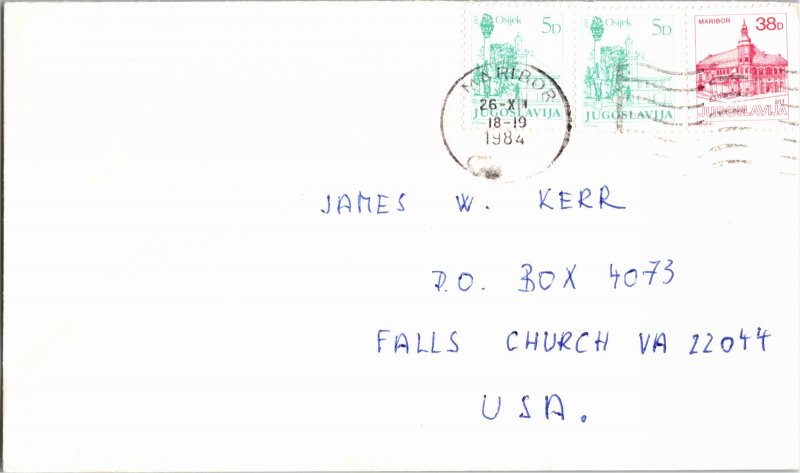 Osijek 5D
JUGOSLAVIJA
Osijek 5D
JUGOSLAVIJA
MARIBOR 38D
JUGOSLAVIJA
MARIBOR
18-19
1984
JAMES W. KERR
P.O. BOX 4073
FALLS CHURCH VA 22044
USA.